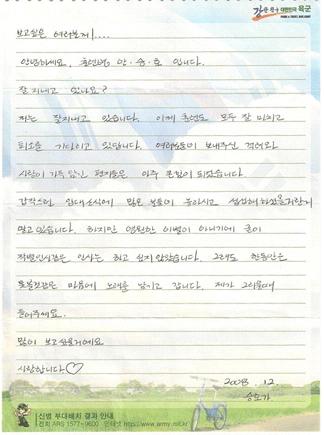 강한 친구 대한민국 육군
보고싶은 여러분께....
안녕하세요, 훈련병 안·승·호 입니다.
잘 지내고 있나요?
저는 잘지내고 있습니다. 이제 훈련도 모두 잘 마치고
퇴소를 기다리고 있답니다. 여러분들이 보내주신 격려와
사랑이 가득 담긴 편지들은 아주 큰힘이 되었습니다.
갑작스런 입대소식에 많은 분들이 놀라시고 섭섭해하셨을거란걸
알고 있습니다. 하지만 영원한 이별이 아니기에 굳이
작별인사같은 인사는 하고 싶지 않았습니다. 그래도 한동안은
못볼것같은 마음에 노래를 남기고 갑니다. 제가 그리울때
들어주세요.
많이 보고싶을거에요
사랑합니다♡
2008. 12.
승호가
신병 부대배치 결과 안내
전화 ARS 1577-9600 인터넷 http://www.army.mil.kr